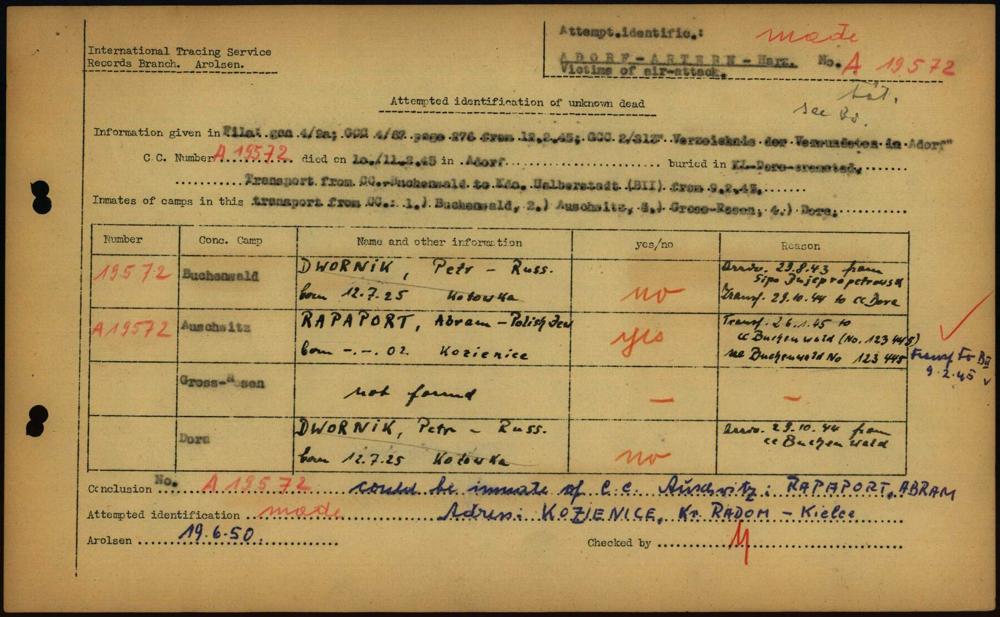 Attempt.identific.: made
International Tracing Service
Records Branch. Arolsen.
ADORF-ARTERN-Harz. No. A 19572
Victims of air-attack.
tät.
see
Attempted identification of unknown dead
Information given in 4/2a; GCC 4/82 page 276 from 12.2.45; GCC 2/212 "Verzeichnis der Verwundeten in Adorf"
C.C. Number A 19572 died on 10./11.2.45 in Adorf buried in
Transport from CC. Buchenwald to Kdo. Halberstadt (BII) from 9.2.45.
Inmates of camps in this transport from CC.: 1.) Buchenwald, 2.) Auschwitz, 3.) Gross-Rosen, 4.) Dora.
Number Conc. Camp Name and other information yes/no Reason
19572 Buchenwald DWORNIK, Petr - Russ. born 12.7.25 Kotowka no arriv. 29.8.43 from Sipo Dnjepropetrowsk Transf. 29.10.44 to cc Dora
A19572 Auschwitz RAPAPORT, Abram - Polish Jew born -.-. 02. Kozienice yes Transf. 26.1.45 to cc Buchenwald (No. 123445) see Buchenwald No 123 445
transf to BII
9.2.45
Gross-Rosen not found — —
Dora DWORNIK, Petr - Russ. born 12.7.25 Kotowka no arriv. 29.10.44 from cc Buchenwald
Conclusion No. A 19572 could be inmate of C.C. Auschwitz: RAPAPORT, ABRAM
Attempted identification made Adress: KOZIENICE, Kr. RADOM - Kielce
Arolsen 19.6.50. Checked by